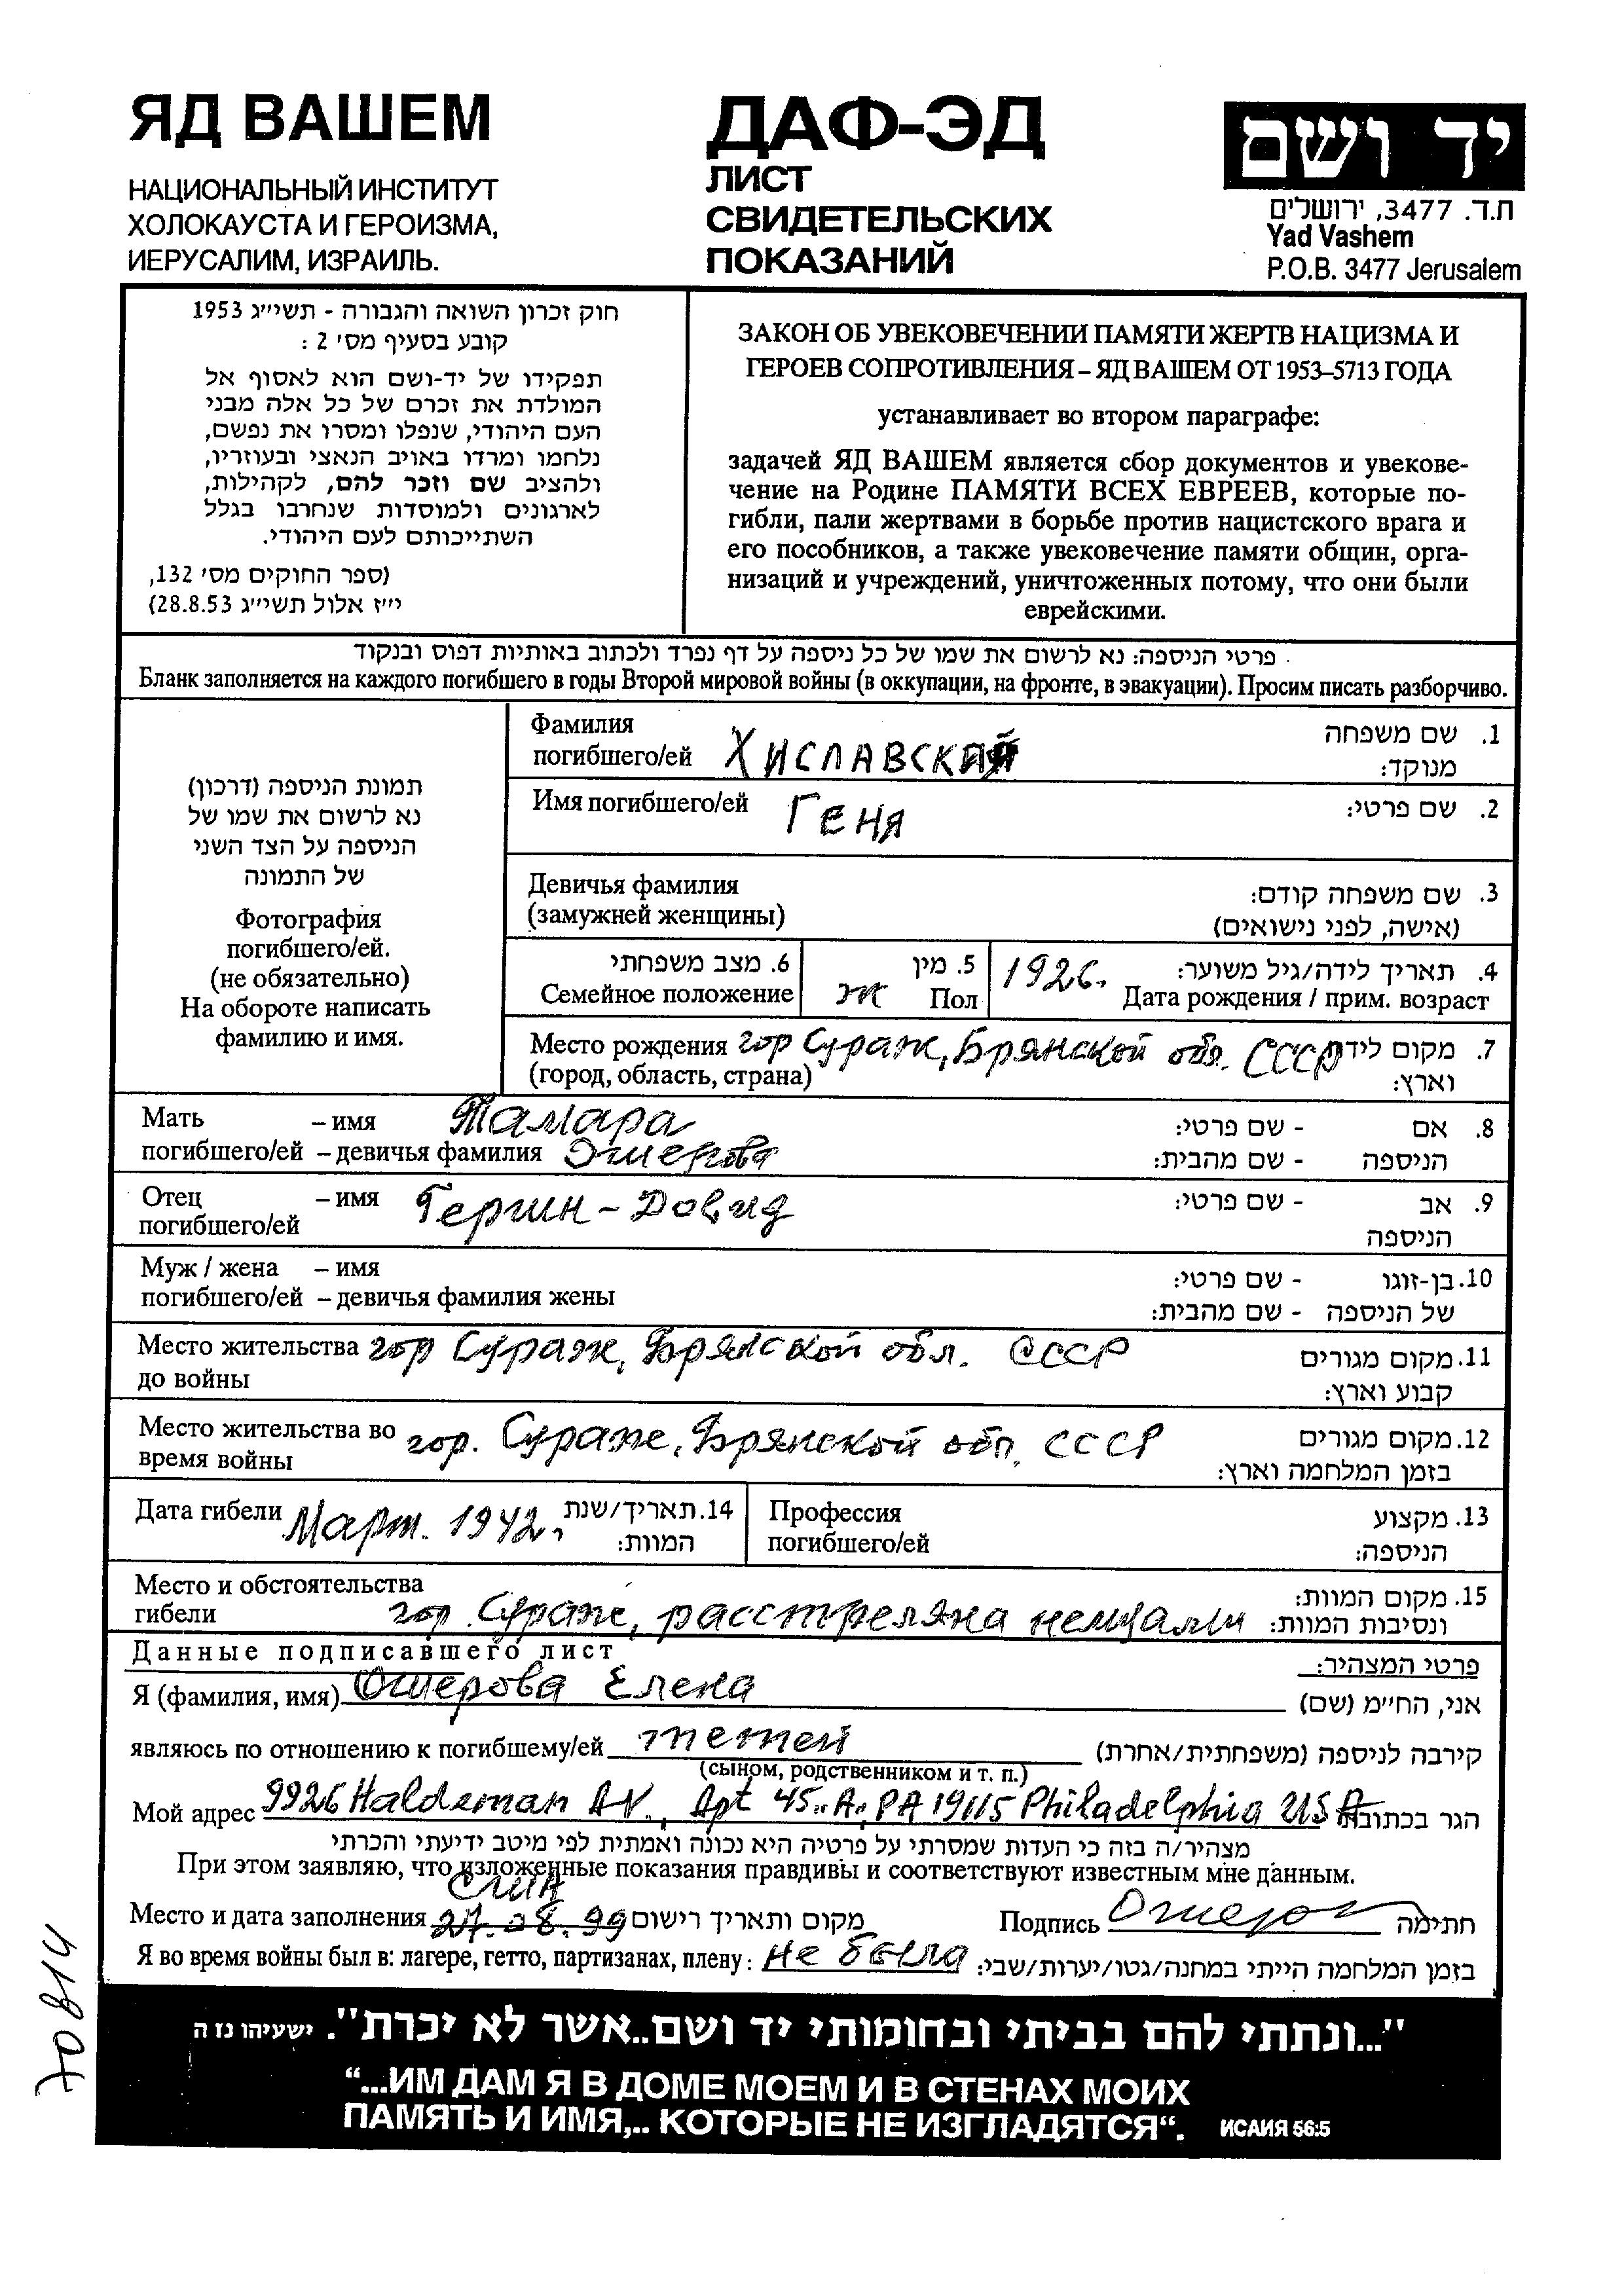 ЯД ВАШЕМ
НАЦИОНАЛЬНЫЙ ИНСТИТУТ
ХОЛОКАУСТА И ГЕРОИЗМА,
ИЕРУСАЛИМ, ИЗРАИЛЬ.
ДАФ-ЭД
ЛИСТ
СВИДЕТЕЛЬСКИХ
ПОКАЗАНИЙ
יד ושם
ת.ד. 3477, ירושלים
Yad Vashem
P.O.B. 3477 Jerusalem
חוק זכרון השואה והגבורה - תשי״ג 1953
קובע בסעיף מס׳ 2 :
תפקידו של יד-ושם הוא לאסוף אל
המולדת את זכרם של כל אלה מבני
העם היהודי, שנפלו ומסרו את נפשם,
נלחמו ומרדו באויב הנאצי ובעוזריו,
ולהציב שם וזכר להם, לקהילות,
לארגונים ולמוסדות שנחרבו בגלל
השתייכותם לעם היהודי.
(ספר החוקים מס׳ 132,
י״ז אלול תשי״ג 28.8.53)
ЗАКОН ОБ УВЕКОВЕЧЕНИИ ПАМЯТИ ЖЕРТВ НАЦИЗМА И
ГЕРОЕВ СОПРОТИВЛЕНИЯ – ЯД ВАШЕМ ОТ 1953–5713 ГОДА
устанавливает во втором параграфе:
задачей ЯД ВАШЕМ является сбор документов и увекове-
чение на Родине ПАМЯТИ ВСЕХ ЕВРЕЕВ, которые по-
гибли, пали жертвами в борьбе против нацистского врага и
его пособников, а также увековечение памяти общин, орга-
низаций и учреждений, уничтоженных потому, что они были
еврейскими.
פרטי הניספה: נא לרשום את שמו של כל ניספה על דף נפרד ולכתוב באותיות דפוס ובנקוד
Бланк заполняется на каждого погибшего в годы Второй мировой войны (в оккупации, на фронте, в эвакуации). Просим писать разборчиво.
תמונת הניספה (דרכון)
נא לרשום את שמו של
הניספה על הצד השני
של התמונה
Фотография
погибшего/ей.
(не обязательно)
На обороте написать
фамилию и имя.
Фамилия 1. שם משפחה
погибшего/ей ХИСЛАВСКАЯ מנוקד:
Имя погибшего/ей ГЕНЯ 2. שם פרטי:
Девичья фамилия 3. שם משפחה קודם:
(замужней женщины) (אישה, לפני נישואים)
6. מצב משפחתי 5. מין 1926. 4. תאריך לידה/גיל משוער:
Семейное положение ж Пол Дата рождения / прим. возраст
Место рождения гор Сураж, Брянской обл. СССР 7. מקום לידה
(город, область, страна) וארץ:
Мать – имя Тамара 8. אם - שם פרטי:
погибшего/ей – девичья фамилия Ошерова הניספה - שם מהבית:
Отец – имя Гершн-Довид 9. אב - שם פרטי:
погибшего/ей הניספה
Муж / жена – имя 10. בן-זוגו - שם פרטי:
погибшего/ей – девичья фамилия жены של הניספה - שם מהבית:
Место жительства гор Сураж, Брянской обл. СССР 11. מקום מגורים
до войны קבוע וארץ:
Место жительства во гор. Сураж, Брянской обл. СССР 12. מקום מגורים
время войны בזמן המלחמה וארץ:
Дата гибели Март. 1942г. 14. תאריך/שנת המוות:
Профессия 13. מקצוע
погибшего/ей הניספה:
Место и обстоятельства 15. מקום המוות:
гибели гор. Сураж, расстреляна немцами ונסיבות המוות:
Данные подписавшего лист פרטי המצהיר:
Я (фамилия, имя) Ошерова Елена אני, הח״מ (שם)
являюсь по отношению к погибшему/ей тетей קירבה לניספה (משפחתית/אחרת)
(сыном, родственником и т. п.)
Мой адрес 9926 Haldeman AV., Apt 45„A„ PA 19115 Philadelphia USA הגר בכתובת
מצהיר/ה בזה כי העדות שמסרתי על פרטיה היא נכונה ואמתית לפי מיטב ידיעתי והכרתי.
При этом заявляю, что изложенные показания правдивы и соответствуют известным мне данным.
США
Место и дата заполнения 27.08.99 מקום ותאריך רישום Подпись Ошеров חתימה
Я во время войны был в: лагере, гетто, партизанах, плену: не была בזמן המלחמה הייתי במחנה/גטו/יערות/שבי:
70814
"...ונתתי להם בביתי ובחומותי יד ושם..אשר לא יכרת". ישעיהו נו ה
“...ИМ ДАМ Я В ДОМЕ МОЕМ И В СТЕНАХ МОИХ
ПАМЯТЬ И ИМЯ,.. КОТОРЫЕ НЕ ИЗГЛАДЯТСЯ“. ИСАИЯ 56:5